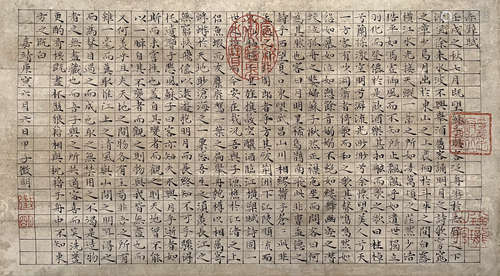 赤壁賦
壬戌之秋七月既望蘇子與客泛舟遊於赤壁之下
清風徐來水波不興舉酒屬客誦明月之詩歌窈窕
之章少焉月出於東山之上徘徊於斗牛之間白露
橫江水光接天縱一葦之所如凌萬頃之茫然浩浩
乎如馮虛御風而不知其所止飄飄乎如遺世獨立
羽化而登仙於是飲酒樂甚扣舷而歌之歌曰桂棹
兮蘭槳擊空明兮泝流光渺渺兮予懷望美人兮天
一方客有吹洞簫者倚歌而和之其聲嗚嗚然如
怨如慕如泣如訴餘音嫋嫋不絕如縷舞幽壑之潛
蛟泣孤舟之嫠婦蘇子愀然正襟危坐而問客曰何
為其然也客曰月明星稀烏鵲南飛此非曹孟德之
詩乎西望夏口東望武昌山川相繆鬱乎蒼蒼此非
孟德之困於周郎者乎方其破荊州下江陵順流而
東也舳艫千里旌旗蔽空釃酒臨江橫槊賦詩固一
世之雄也而今安在哉況吾與子漁樵於江渚之上
侶魚蝦而友麋鹿駕一葉之扁舟舉匏樽以相屬寄
蜉蝣於天地渺滄海之一粟哀吾生之須臾羨長江之
無窮挾飛仙以遨遊抱明月而長終知不可乎驟得
托遺響於悲風蘇子曰客亦知夫水與月乎逝者如斯
而未嘗往也盈虛者如彼而卒莫消長也蓋將自其變者而觀之則天地曾不能
以一瞬自其不變者而觀之則物與我皆無盡也而
又何羨乎且夫天地之間物各有主苟非吾之所有
雖一毫而莫取惟江上之清風與山間之明月耳得之
而為聲目遇之而成色取之無禁用之不竭是造物
者之無盡藏也而吾與子之所共適客喜而笑洗盞
更酌肴核既盡杯盤狼籍相與枕藉乎舟中不知東
方之既白
嘉靖寅六月六日甲子徵明